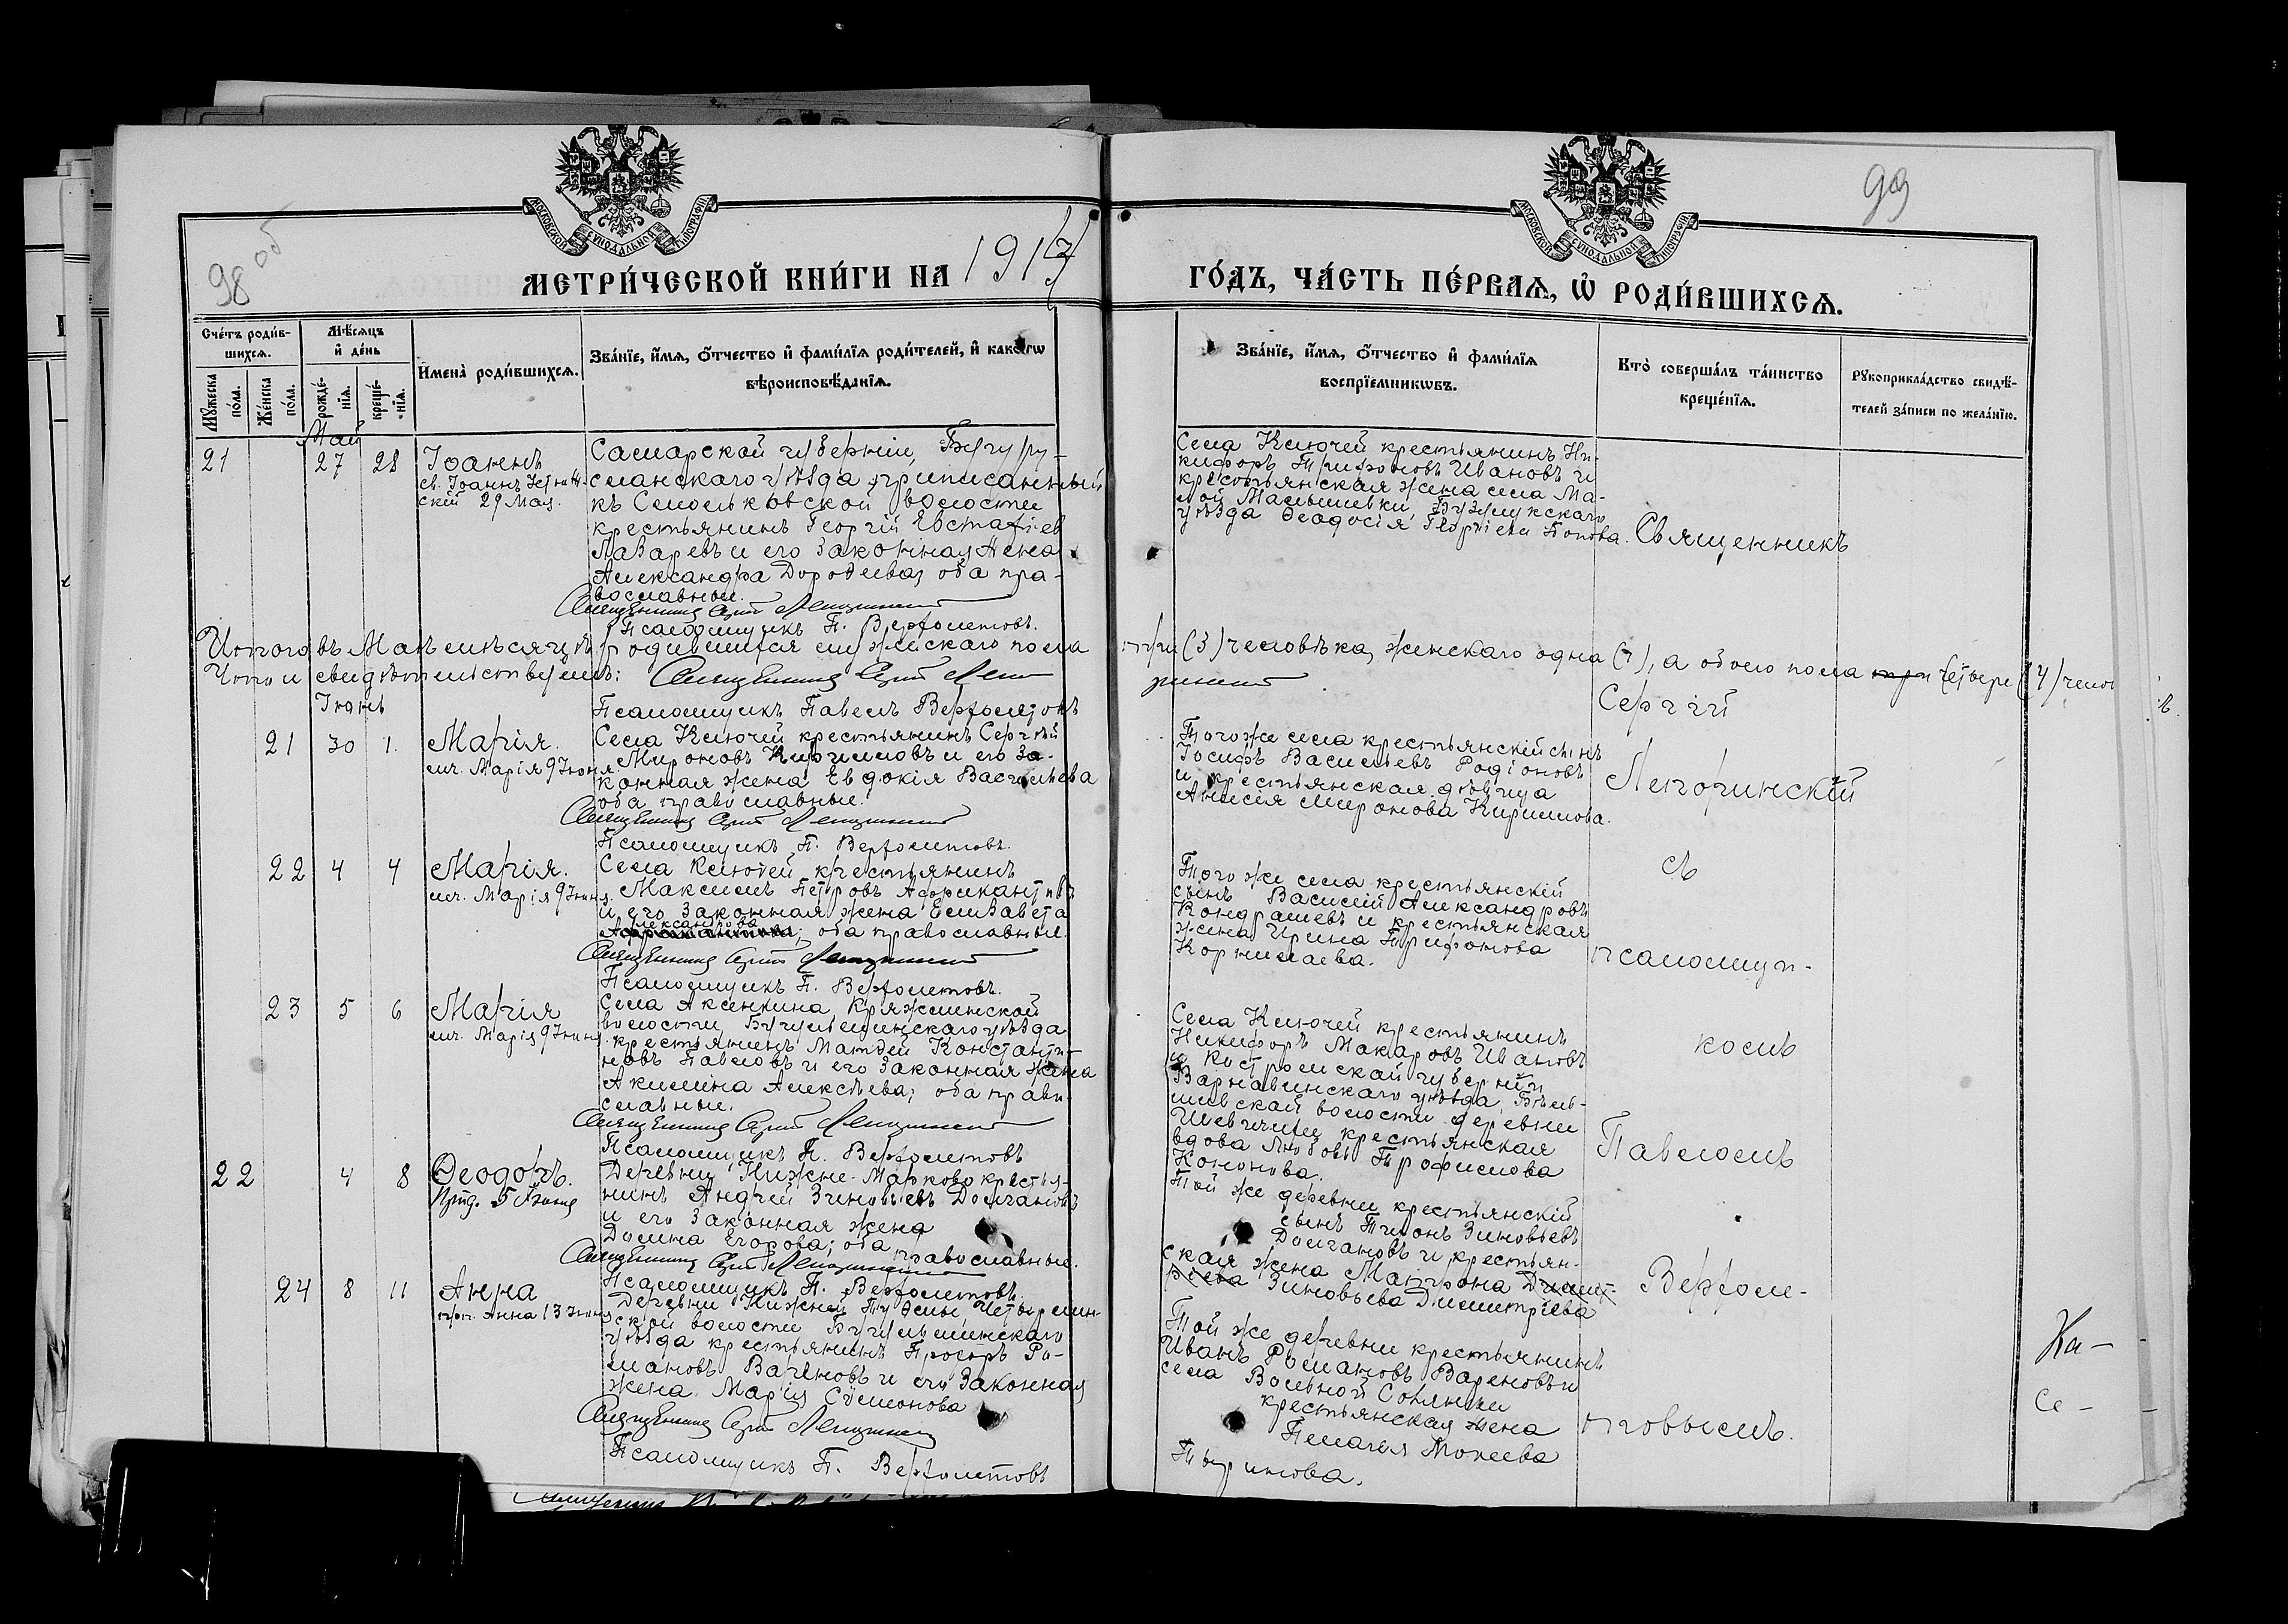 98 об
99
МОСКОВСКОЙ СѴНОДАЛЬНОЙ ТИПОГРАФІИ
МОСКОВСКОЙ СѴНОДАЛЬНОЙ ТИПОГРАФІИ
МЕТРИ́ЧЕСКОЙ КНИ́ГИ НА 191
ГО́ДЪ, ЧА́СТЬ ПЕ́РВАѦ, Ѡ҆ РОДИ́ВШИХСѦ.
Сче́тъ роди́в-
шихсѧ.
Мꙋ́жеска
по́ла.
Же́нска
по́ла.
Мѣ́сѧцъ
и҆ де́нь
рожде́-
нїѧ.
креще́-
нїѧ.
И҆мена̀ роди́вшихсѧ.
Зва́нїе, и҆́мѧ, ѻ҆́тчество и҆ фами́лїѧ роди́телей, и҆ како́гѡ
вѣроисповѣ́данїѧ.
Зва́нїе, и҆́мѧ, ѻ҆́тчество и҆ фами́лїѧ
воспрїе́мникѡвъ.
Кто̀ соверша́лъ та́инство
креще́нїѧ.
Рꙋкоприкла́дство свидѣ́-
телей за́писи по жела́нїю.
Май
21 27 28 Іоаннъ
св. Іоаннъ
скій 29 Мая.
Самарской губерніи, Бугуру-
сланскаго уѣзда приписанный
къ волости
крестьянинъ Георгій Евстафіев
Лазаревъ и его законная жена
Александра Доροѳеева, оба пра-
вославные.
Псаломщикъ П. Верхолетовъ.
Села Ключей крестьянинъ Ни-
кифоръ Трифоновъ Ивановъ и
крестьянская жена села Ма-
лой Малышевки, Бузулукскаго
уѣзда Ѳеодосія Попова.
Священникъ
Итого въ Маѣ мѣсяцѣ родившихся мужескаго пола
три (3) человѣка, женскаго одна (1), а обоего пола четыре (4) челов
Что и свидѣтельствуемъ:
Псаломщикъ Павелъ Верхолетовъ
Сергій
Іюнь
21 30 1. Марія.
мч. Марія 9 Іюня.
Села Ключей крестьянинъ Сергѣй
Мироновъ Кирилловъ и его за-
конная жена Евдокія Васильева
оба православные.
Псаломщикъ П. Верхолетовъ.
Того же села крестьянскій сынъ
Іосифъ Васильевъ Родіоновъ
и крестьянская дѣвица
Анисія Миронова Кириллова.
22 4 4 Марія.
мч. Марія 9 Іюня.
Села Ключей крестьянинъ
Максимъ Петровъ
и его законная жена Елизавета
Александрова
оба православные.
Псаломщикъ П. Верхолетовъ.
Того же села крестьянскій
сынъ Василій Александровъ
Кондрашевъ и крестьянская
жена Ирина Трифонова
Корнилаева.
съ
псаломщи-
23 5 6 Марія
мч. Марія 9 Іюня.
Села Аксенкина,
волости, Бугульминскаго уѣзда
крестьянинъ Матѳей Константи-
новъ Павловъ и его законная жена
Акилина Алексѣева; оба право-
славные.
Псаломщикъ П. Верхолетовъ
Села Ключей крестьянинъ
Никифоръ Макаровъ Ивановъ
и Костромской губерніи
Варнавинскаго уѣзда,
волости деревни
крестьянская
вдова Любовь Трофимова
Кононова.
комъ
Павломъ
22 4 8 Ѳеодоръ.
5 Іюня
Деревни Нижне-Марково крестья-
нинъ Андрей Зиновьевъ Долгановъ
и его законная жена
Домна Егорова; оба
православные.
Псаломщикъ П. Верхолетовъ
Той же деревни крестьянскій
сынъ Тихонъ Зиновьевъ
Долгановъ и крестьян-
ская жена Матрона
Зиновьева Димитріева
Верхоле-
24 8 11 Анна
прп. Анна 13 Іюня
Деревни Нижней
ской волости Бугульминскаго
уѣзда крестьянинъ Ро-
мановъ Вареновъ и его законная
жена Марія Симонова
Псаломщикъ П. Верхолетовъ
Той же деревни крестьянинъ
Иванъ Романовъ Вареновъ и
села Вольной Солянки
крестьянская жена
Пелагея Мокеева
товымъ.
Ка-
се-